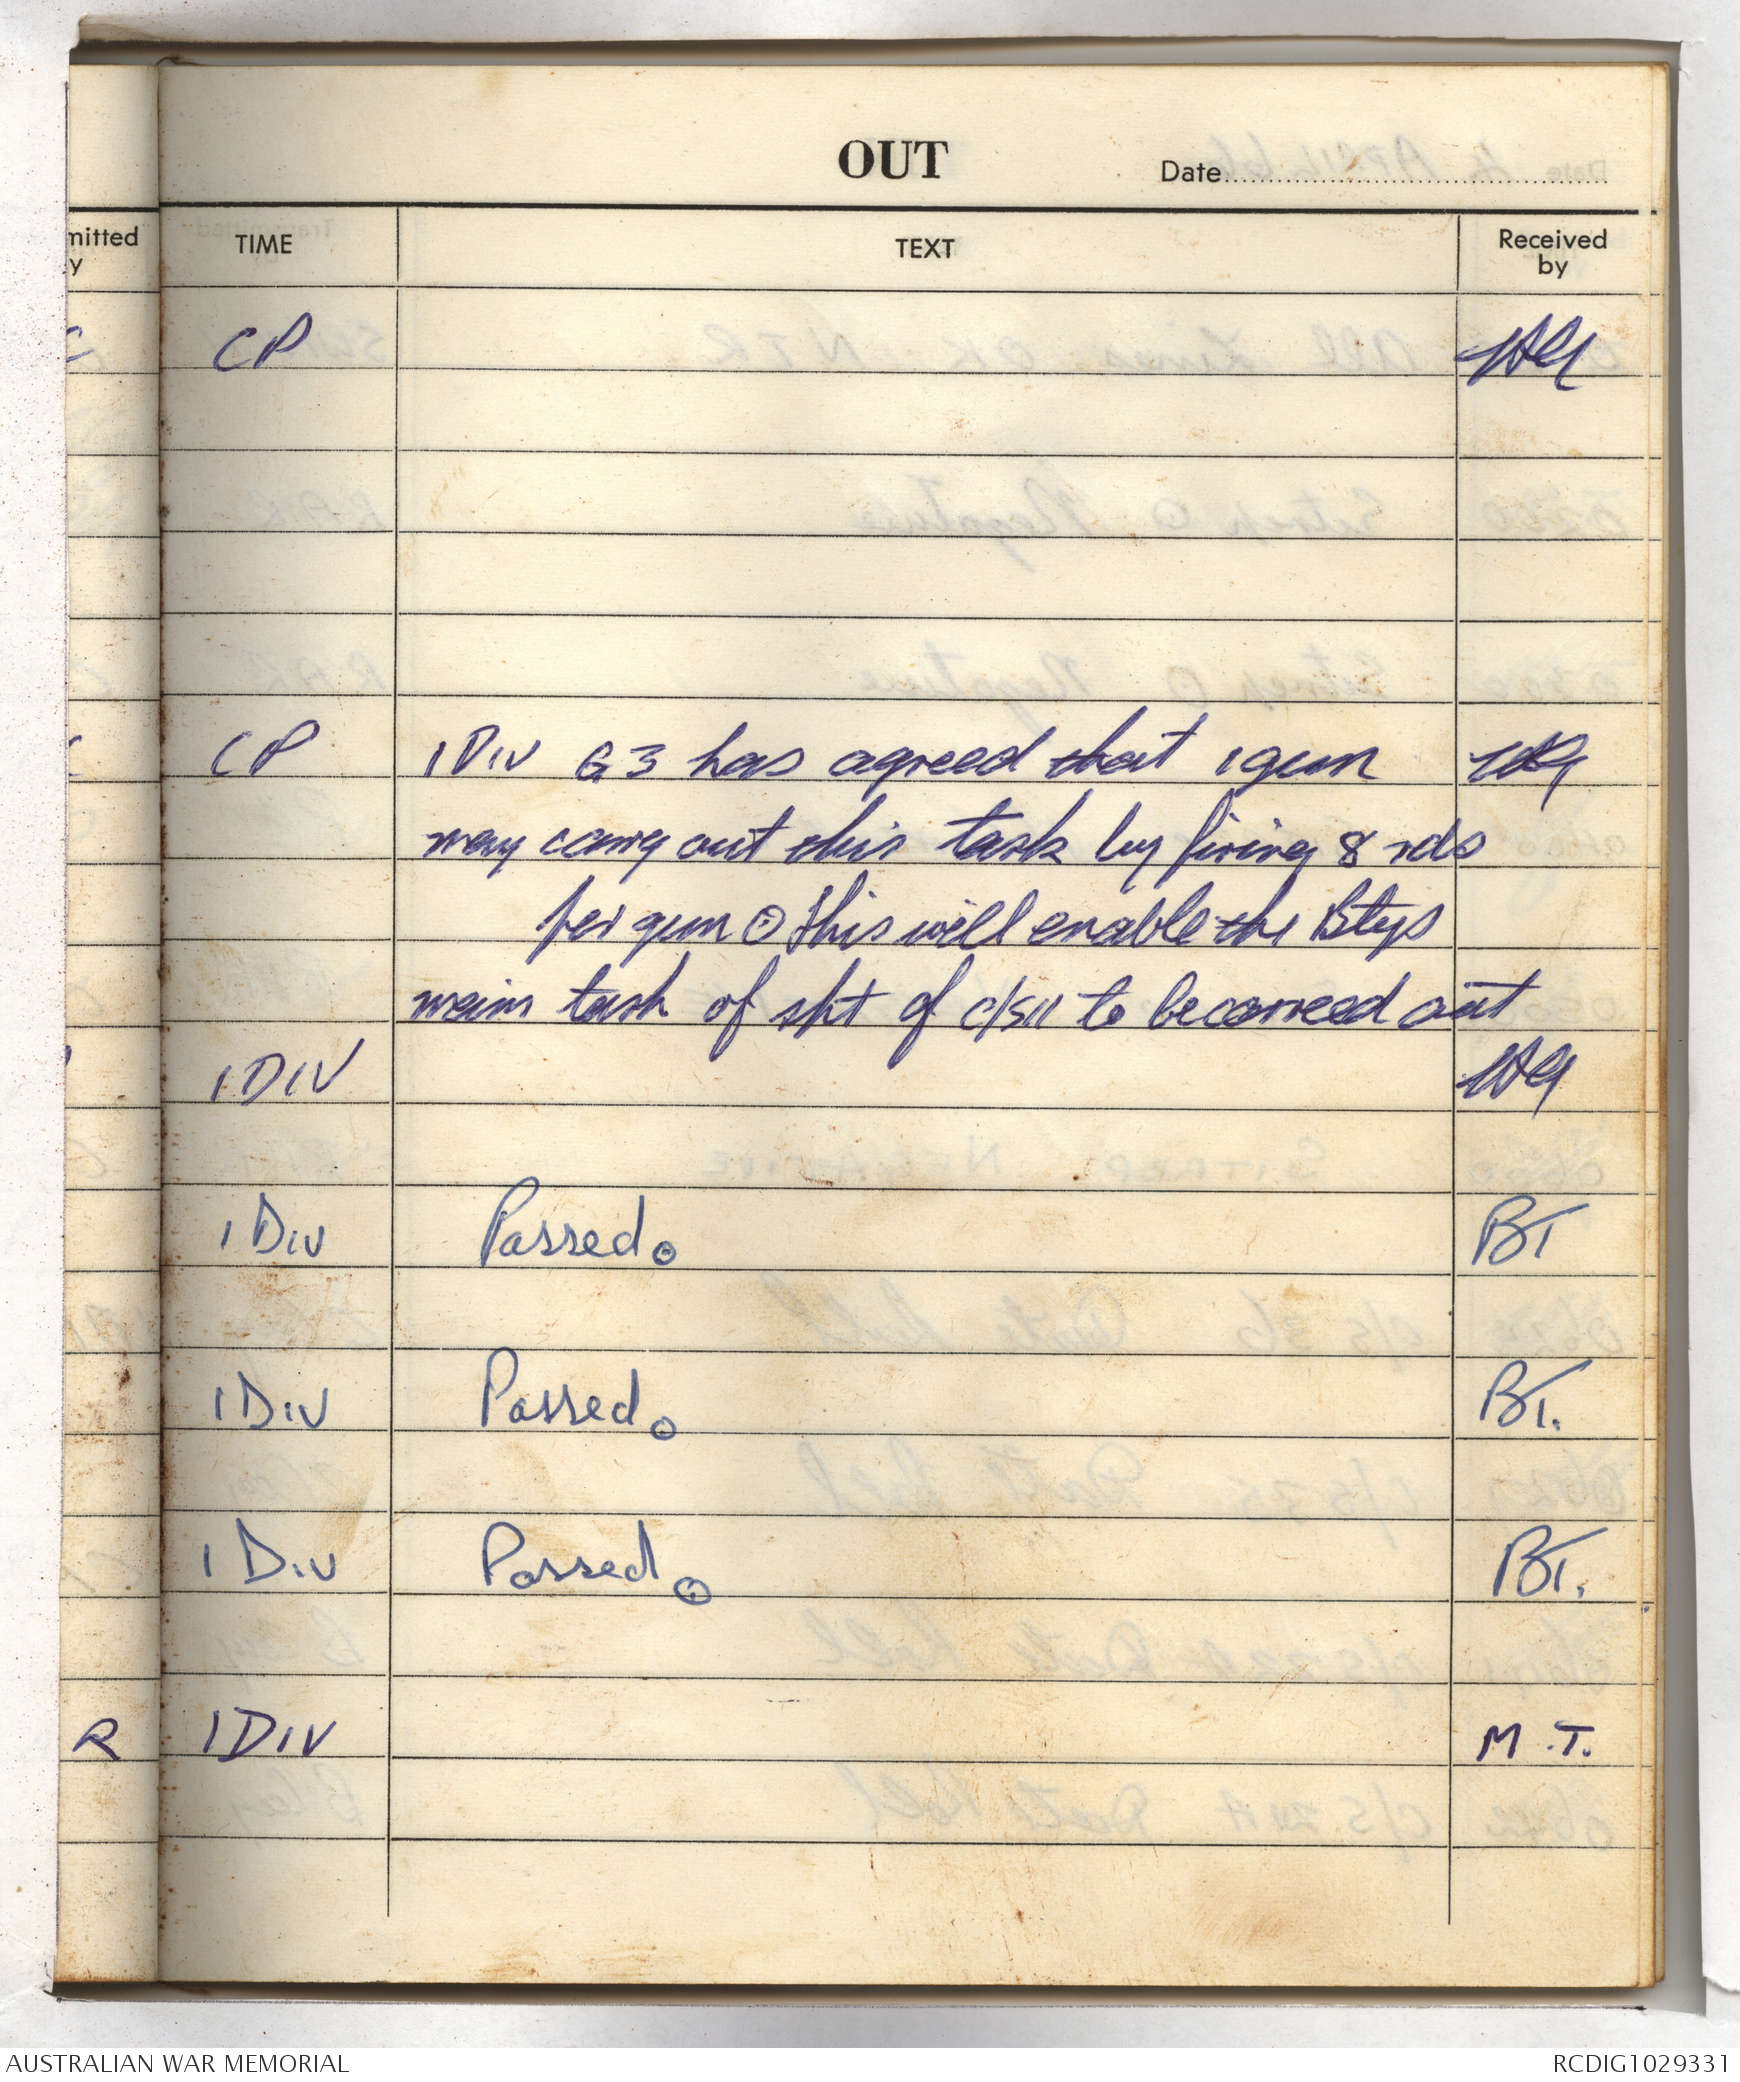 OUT
Date
mitted
y
TIME
TEXT
Received
by
CP
CP
1 Div G3 has agreed that 1 gun
may carry out this task by firing 8 rds
per gun ⊙ This will enable the Btys
main task of spt of c/s 11 to be carreed out
1 DIV
1 Div Passed ⊙ BT
1 Div Passed ⊙ BT.
1 Div Passed ⊙ BT.
R 1 DIV M.T.
AUSTRALIAN WAR MEMORIAL
RCDIG1029331